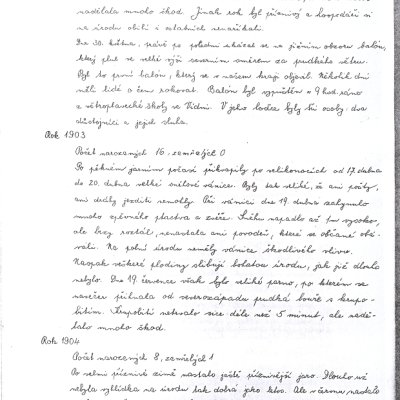 nadělala mnoho škod. Jinak rok byl příznivý a hospodáři si
na úrodu obilí i ostatních nenaříkali.
Dne 30. května, právě po poledni ukázal se na jižním obzoru balón,
který plul ve velké výši severním směrem za prudkého větru.
Byl to první balón, který se v našem kraji objevil. Několik dní
měli lidé o čem rokovat. Balón byl vypuštěn v 9 hod. ráno
z větroplavecké školy ve Vídni. V jeho lodce byly tři osoby: dva
důstojníci a jejich sluha.
Rok 1903
Počet narozených 16, zemřelých 0
Po pěkném jarním počasí překvapily po velikonocích od 17. dubna
do 20. dubna velké sněhové vánice. Byly tak veliké, že ani pošty,
ani dráhy jezditi nemohly. Při vánici dne 19. dubna zahynulo
mnoho zpěvného ptactva a zvěře. Sněhu napadlo až 1m vysoko,
ale brzy roztál, nenastala ani povodeň, které se občané obá-
vali. Na polní úrodu neměly vánice škodlivého vlivu.
Naopak veškeré plodiny slibují bohatou úrodu, jak již dlouho
nebylo. Dne 19. července však bylo veliké parno, po kterém se
navečer přihnala od severozápadu prudká bouře s krupo-
bitím. Krupobití netrvalo sice déle než 5 minut, ale naděl-
alo mnoho škod.
Rok 1904
Počet narozených 8, zemřelých 1
Po velmi příznivé zimě nastalo ještě příznivější jaro. Dlouho už
nebyla vyhlídka na úrodu tak dobrá jako letos. Ale v červnu nastalo